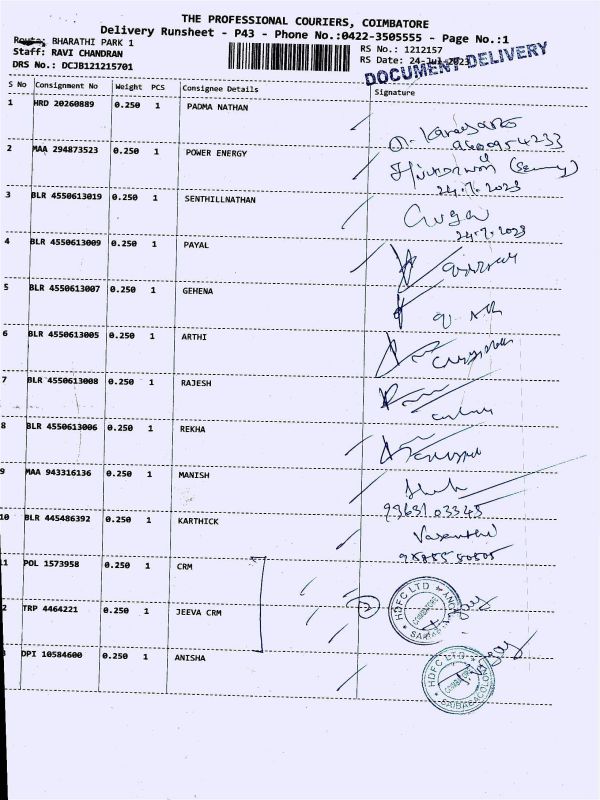 THE PROFESSIONAL COURIERS, COIMBATORE
Delivery Runsheet - P43 - Phone No.:0422-3505555 - Page No.:1
Route: BHARATHI PARK 1
Staff: RAVI CHANDRAN
DRS No.: DCJB121215701
RS No.: 1212157
RS Date: 24-Jul-2023
DOCUMENT DELIVERY
S No Consignment No Weight PCS Consignee Details Signature
1 HRD 20260889 0.250 1 PADMA NATHAN
2 MAA 294873523 0.250 1 POWER ENERGY
24.7.2023
3 BLR 4550613019 0.250 1 SENTHILLNATHAN
24.7.2023
4 BLR 4550613009 0.250 1 PAYAL
5 BLR 4550613007 0.250 1 GEHENA
6 BLR 4550613005 0.250 1 ARTHI
7 BLR 4550613008 0.250 1 RAJESH
8 BLR 4550613006 0.250 1 REKHA
9 MAA 943316136 0.250 1 MANISH
10 BLR 445486392 0.250 1 KARTHICK
Vasanthi
POL 1573958 0.250 1 CRM
TRP 4464221 0.250 1 JEEVA CRM
2
HDFC LTD
COIMBATORE
DPI 10584600 0.250 1 ANISHA
HDFC LTD
COIMBATORE
SAIBABACOLONY